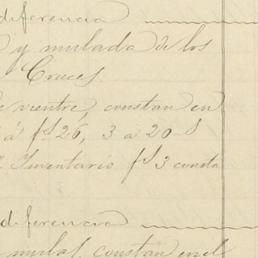 diferencia
y mulada de los
Cruces.
e vientre, constan en
á f.s 26, 3 a 20 $
Inventario f.s 3 consta
diferencia
mulas, constan en el